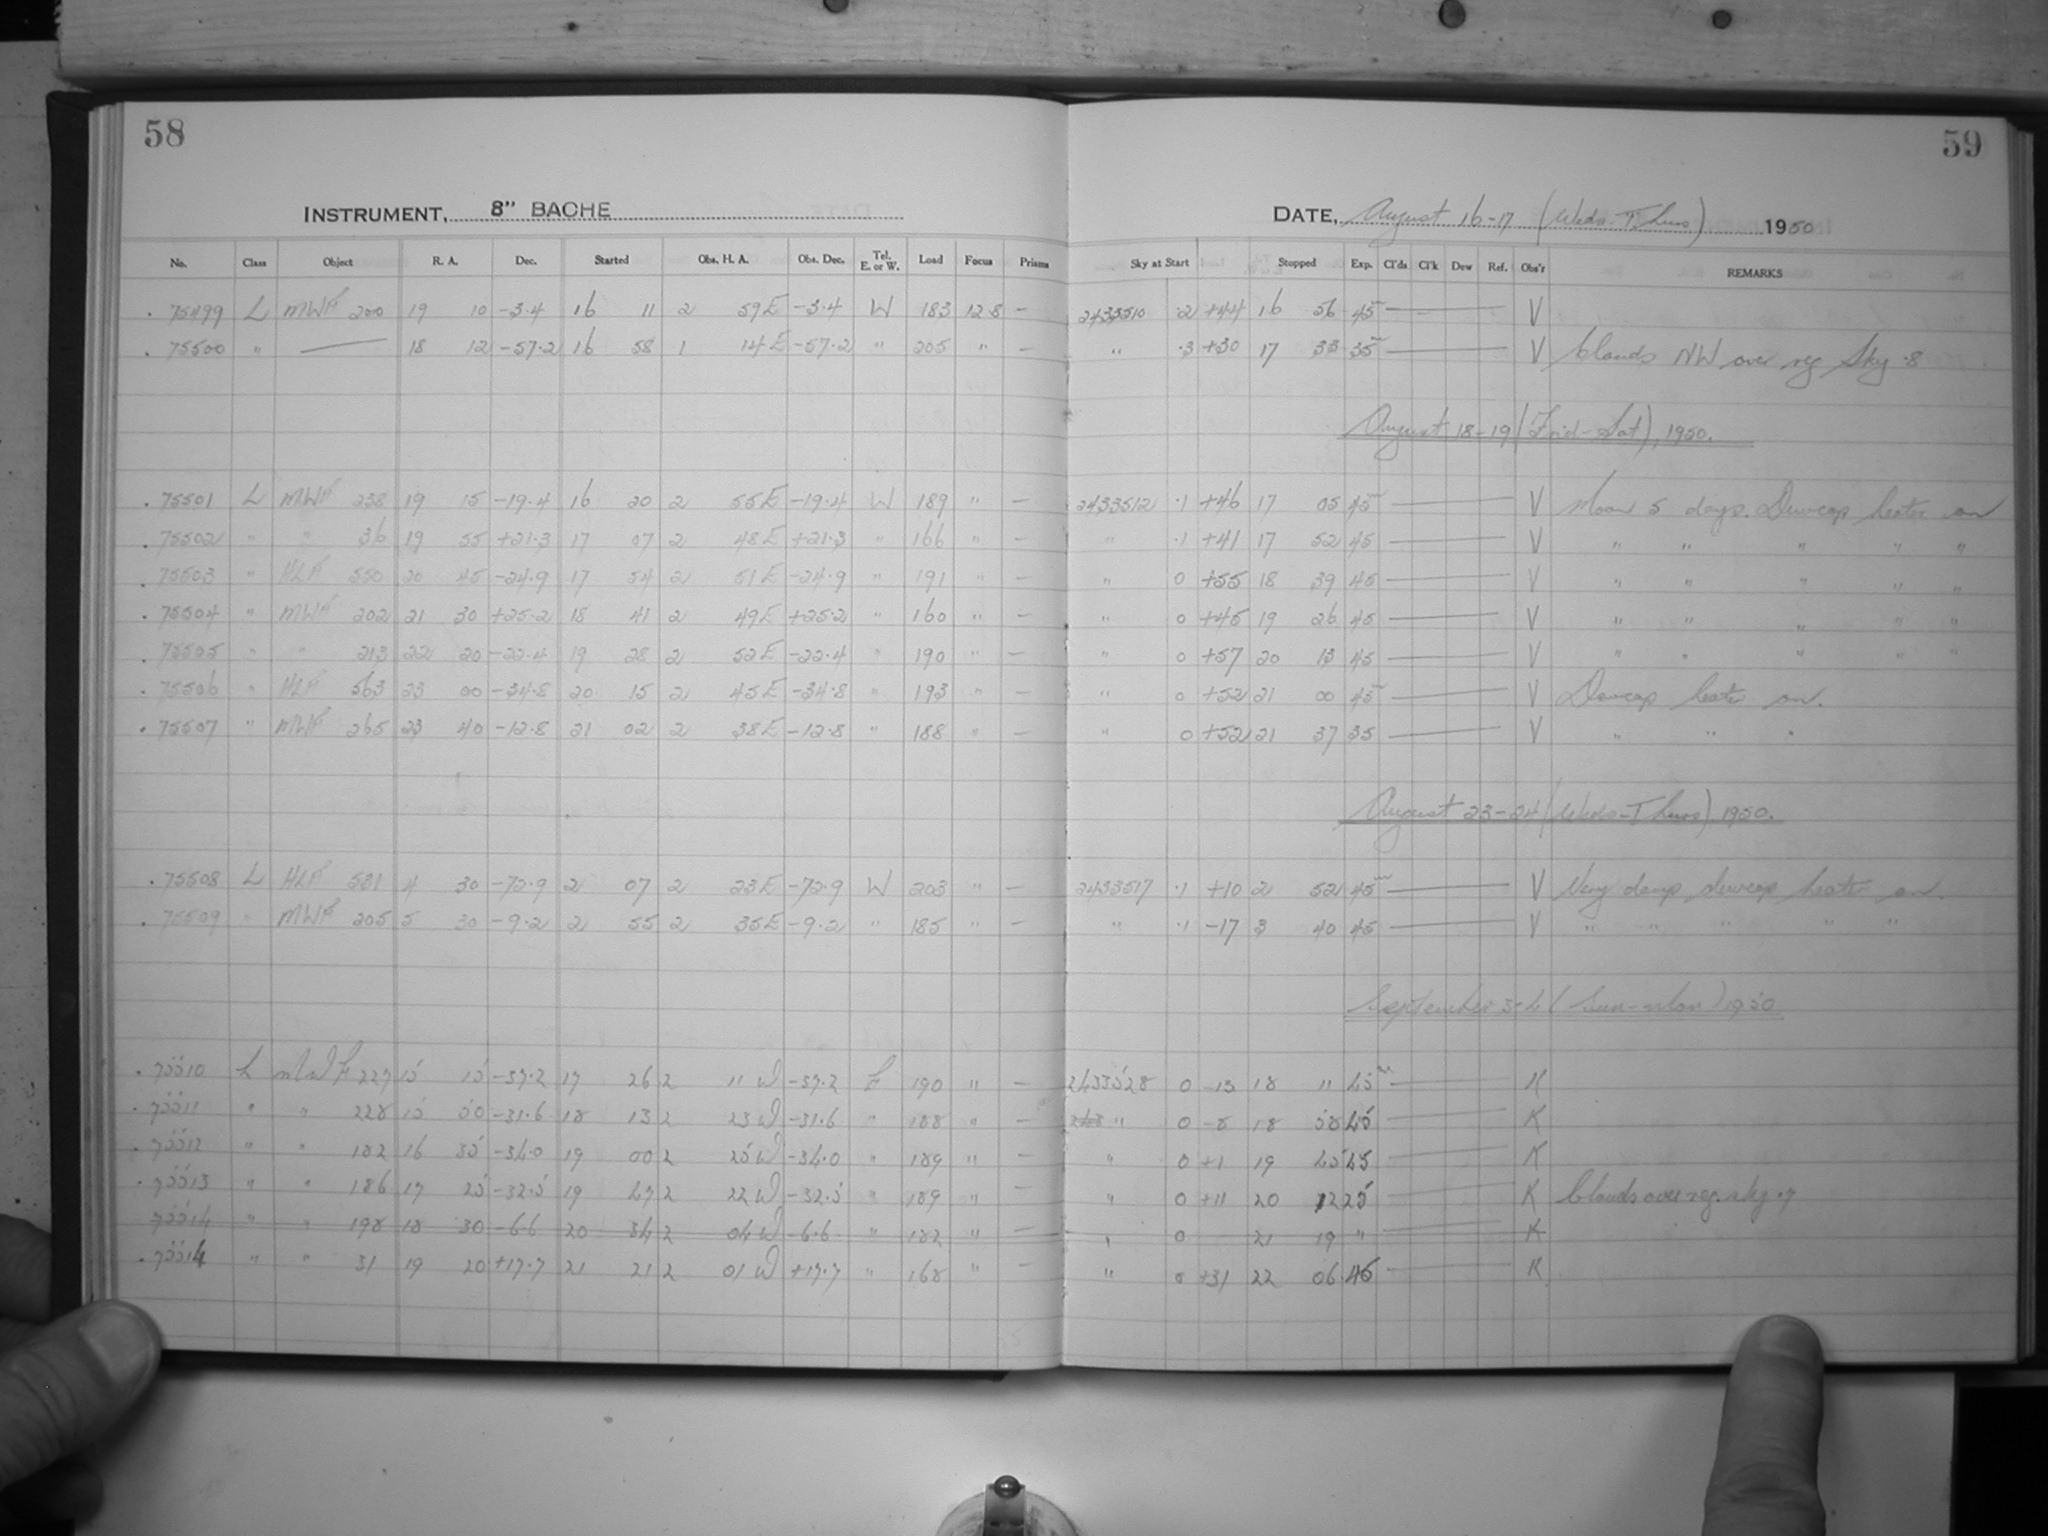 58
59
INSTRUMENT, 8" BACHE
DATE, August 16-17 (Weds-Thurs) 1950
No. Class Object R. A. Dec. Started Obs. H. A. Obs. Dec. Tel. E. or W. Load Focus Prisms Sky at Start Stopped Exp. Cl'ds Cl'k Dew Ref. Obs'r REMARKS
75499 L MWF 200 19 10 -3.4 16 11 2 59E -3.4 W 183 12.8 - 2433510 .2 +44 16 56 45 V
75500 " — 18 12 -57.2 16 58 1 14E -57.2 " 205 " - " .3 +30 17 33 35 V Clouds NW over reg Sky .8
August 18-19 (Frid-Sat), 1950.
75501 L MWF 238 19 15 -19.4 16 20 2 55E -19.4 W 189 " - 2433512 .1 +46 17 05 45 V Moon 5 days. Dewcap heater on
75502 " " 36 19 55 +21.3 17 07 2 48E +21.3 " 166 " - " .1 +41 17 52 45 V " " " " "
75503 " HLF 550 20 45 -24.9 17 54 2 51E -24.9 " 191 " - " 0 +55 18 39 45 V " " " " "
75504 " MWF 202 21 30 +25.2 18 41 2 49E +25.2 " 160 " - " 0 +45 19 26 45 V " " " " "
75505 " " 213 22 20 -22.4 19 28 2 52E -22.4 " 190 - " 0 +57 20 13 45 V " " " " "
75506 " HLF 563 23 00 -34.8 20 15 2 45E -34.8 " 193 " - " 0 +52 21 00 45 V Dewcap heater on.
75507 " MWF 265 23 40 -12.8 21 02 2 38E -12.8 " 188 " - " 0 +52 21 37 35 V " " "
August 23-24 (Weds-Thurs) 1950.
75508 L HLF 531 4 30 -72.9 2 07 2 23E -72.9 W 203 " - 2433517 .1 +10 2 52 45 V Very damp dewcap heater on.
75509 " MWF 205 5 30 -9.2 2 55 2 35E -9.2 " 185 " - " .1 -17 3 40 45 V " " " " "
September 3-4 (Sun-Mon) 1950
75510 L MWF 227 15 15 -37.2 17 26 2 11 W -37.2 E 190 " - 2433528 0 -13 18 11 45 K
75511 " " 228 15 50 -31.6 18 13 2 23 W -31.6 " 188 " - " 0 -8 18 58 45 K
75512 " " 182 16 35 -34.0 19 00 2 25 W -34.0 " 189 " - " 0 +1 19 45 45 K
75513 " " 186 17 25 -32.5 19 47 2 22 W -32.5 " 189 " - " 0 +11 20 12 25 K Clouds over reg. sky .7
75514 " " 198 18 30 -6.6 20 34 2 04 W -6.6 " 182 " - " 0 21 19 " K
75514 " " 31 19 20 +17.7 21 21 2 01 W +17.7 " 168 " - " 0 +31 22 06 45 K